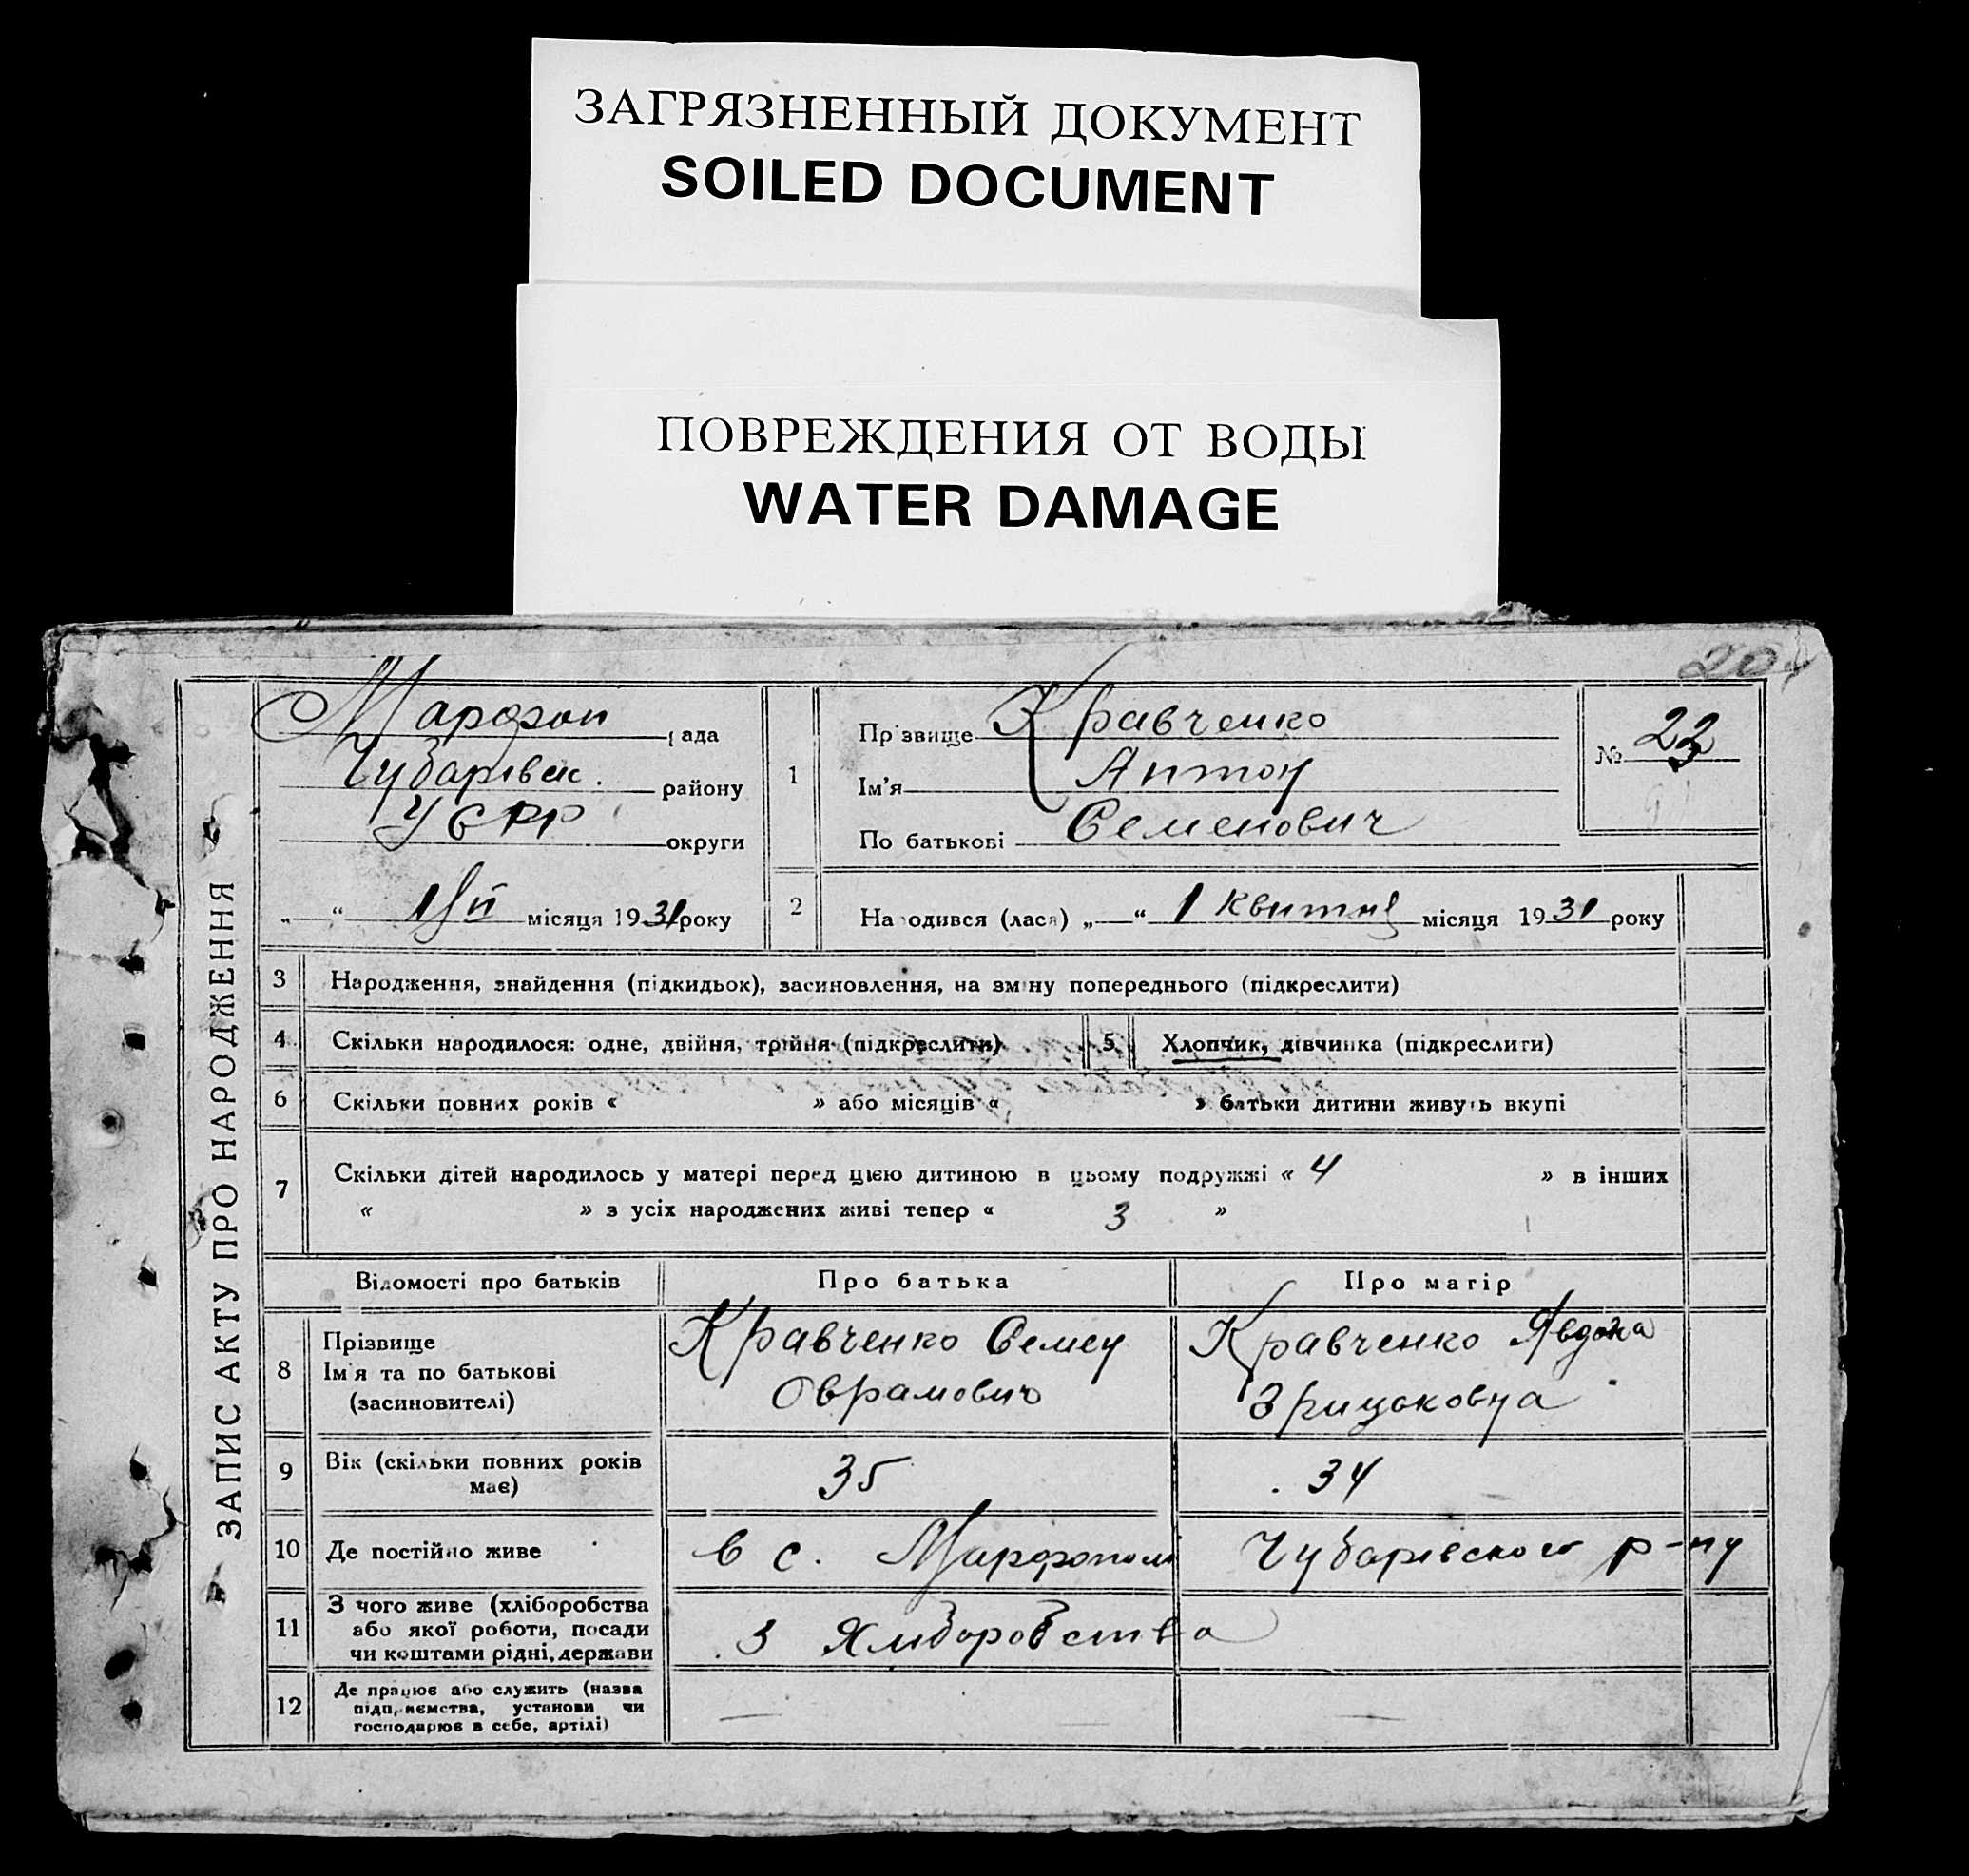 ЗАГРЯЗНЕННЫЙ ДОКУМЕНТ
SOILED DOCUMENT
ПОВРЕЖДЕНИЯ ОТ ВОДЫ
WATER DAMAGE
ЗАПИС АКТУ ПРО НАРОДЖЕННЯ
Марфоп рада
Чубарівськ. району
УСРР округи
„ “ місяця 1931 року
1
Прізвище Кравченко
Ім'я Антон
По батькові Семенович
№ 23
2 Народився (лася) „ “ 1 квитня місяця 1931 року
3 Народження, знайдення (підкидьок), засиновлення, на зміну попереднього (підкреслити)
4 Скільки народилося: одне, двійня, трійня (підкреслити) 5 Хлопчик, дівчинка (підкреслити)
6 Скільки повних років « » або місяців « » батьки дитини живуть вкупі
7 Скільки дітей народилось у матері перед цією дитиною в цьому подружжі « 4 » в інших
« » з усіх народжених живі тепер « 3 »
Відомості про батьків Про батька Про матір
8 Прізвище Ім'я та по батькові (засиновителі)
Кравченко Семен
Оврамович
Кравченко Явдоха
9 Вік (скільки повних років має) 35 34
10 Де постійно живе в с. Марфополі Чубарівського р-ну
11 З чого живе (хліборобства або якої роботи, посади чи коштами рідні, держави З Хліборобства
12 Де працює або служить (назва підприємства, установи чи господарює в себе, артілі) — —